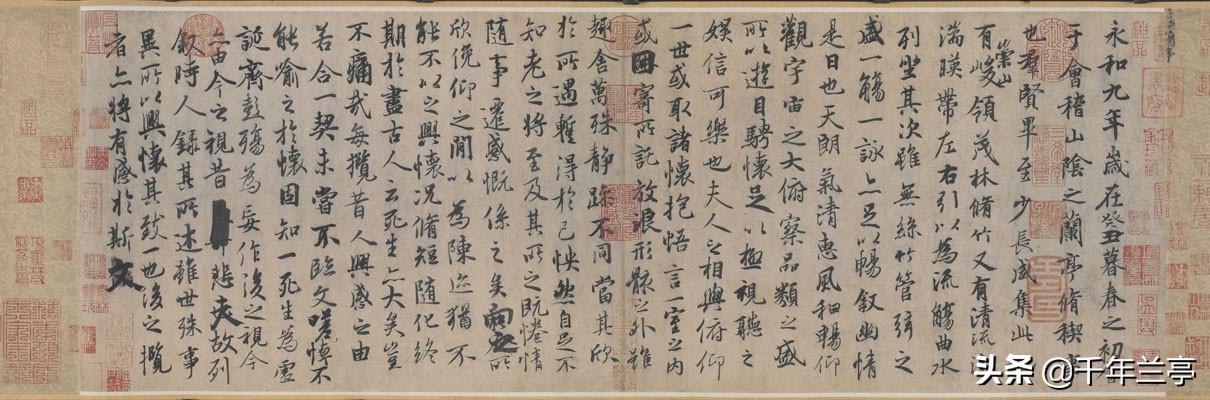 永和九年歲在癸丑暮春之初會
于會稽山陰之蘭亭脩稧事
也羣賢畢至少長咸集此
有崇山峻領茂林脩竹又有清流
湍暎帶左右引以為流觴曲水
列坐其次雖無絲竹管弦之
盛一觴一詠亦足以暢叙幽情
是日也天朗氣清惠風和暢仰
觀宇宙之大俯察品類之盛
所以遊目騁懷足以極視聽之
娛信可樂也夫人之相與俯仰
一世或取諸懷抱悟言一室之內
或因寄所託放浪形骸之外雖
趣舍萬殊靜躁不同當其欣
於所遇暫得於己怏然自足不
知老之將至及其所之既惓情
隨事遷感慨係之矣向之所
欣俛仰之閒以為陳迹猶不
能不以之興懷況脩短隨化終
期於盡古人云死生亦大矣豈
不痛哉每攬昔人興感之由
若合一契未嘗不臨文嗟悼不
能喻之於懷固知一死生為虛
誕齊彭殤為妄作後之視今
亦由今之視昔悲夫故列
叙時人錄其所述雖世殊事
異所以興懷其致一也後之攬
者亦將有感於斯文
头条 @千年兰亭